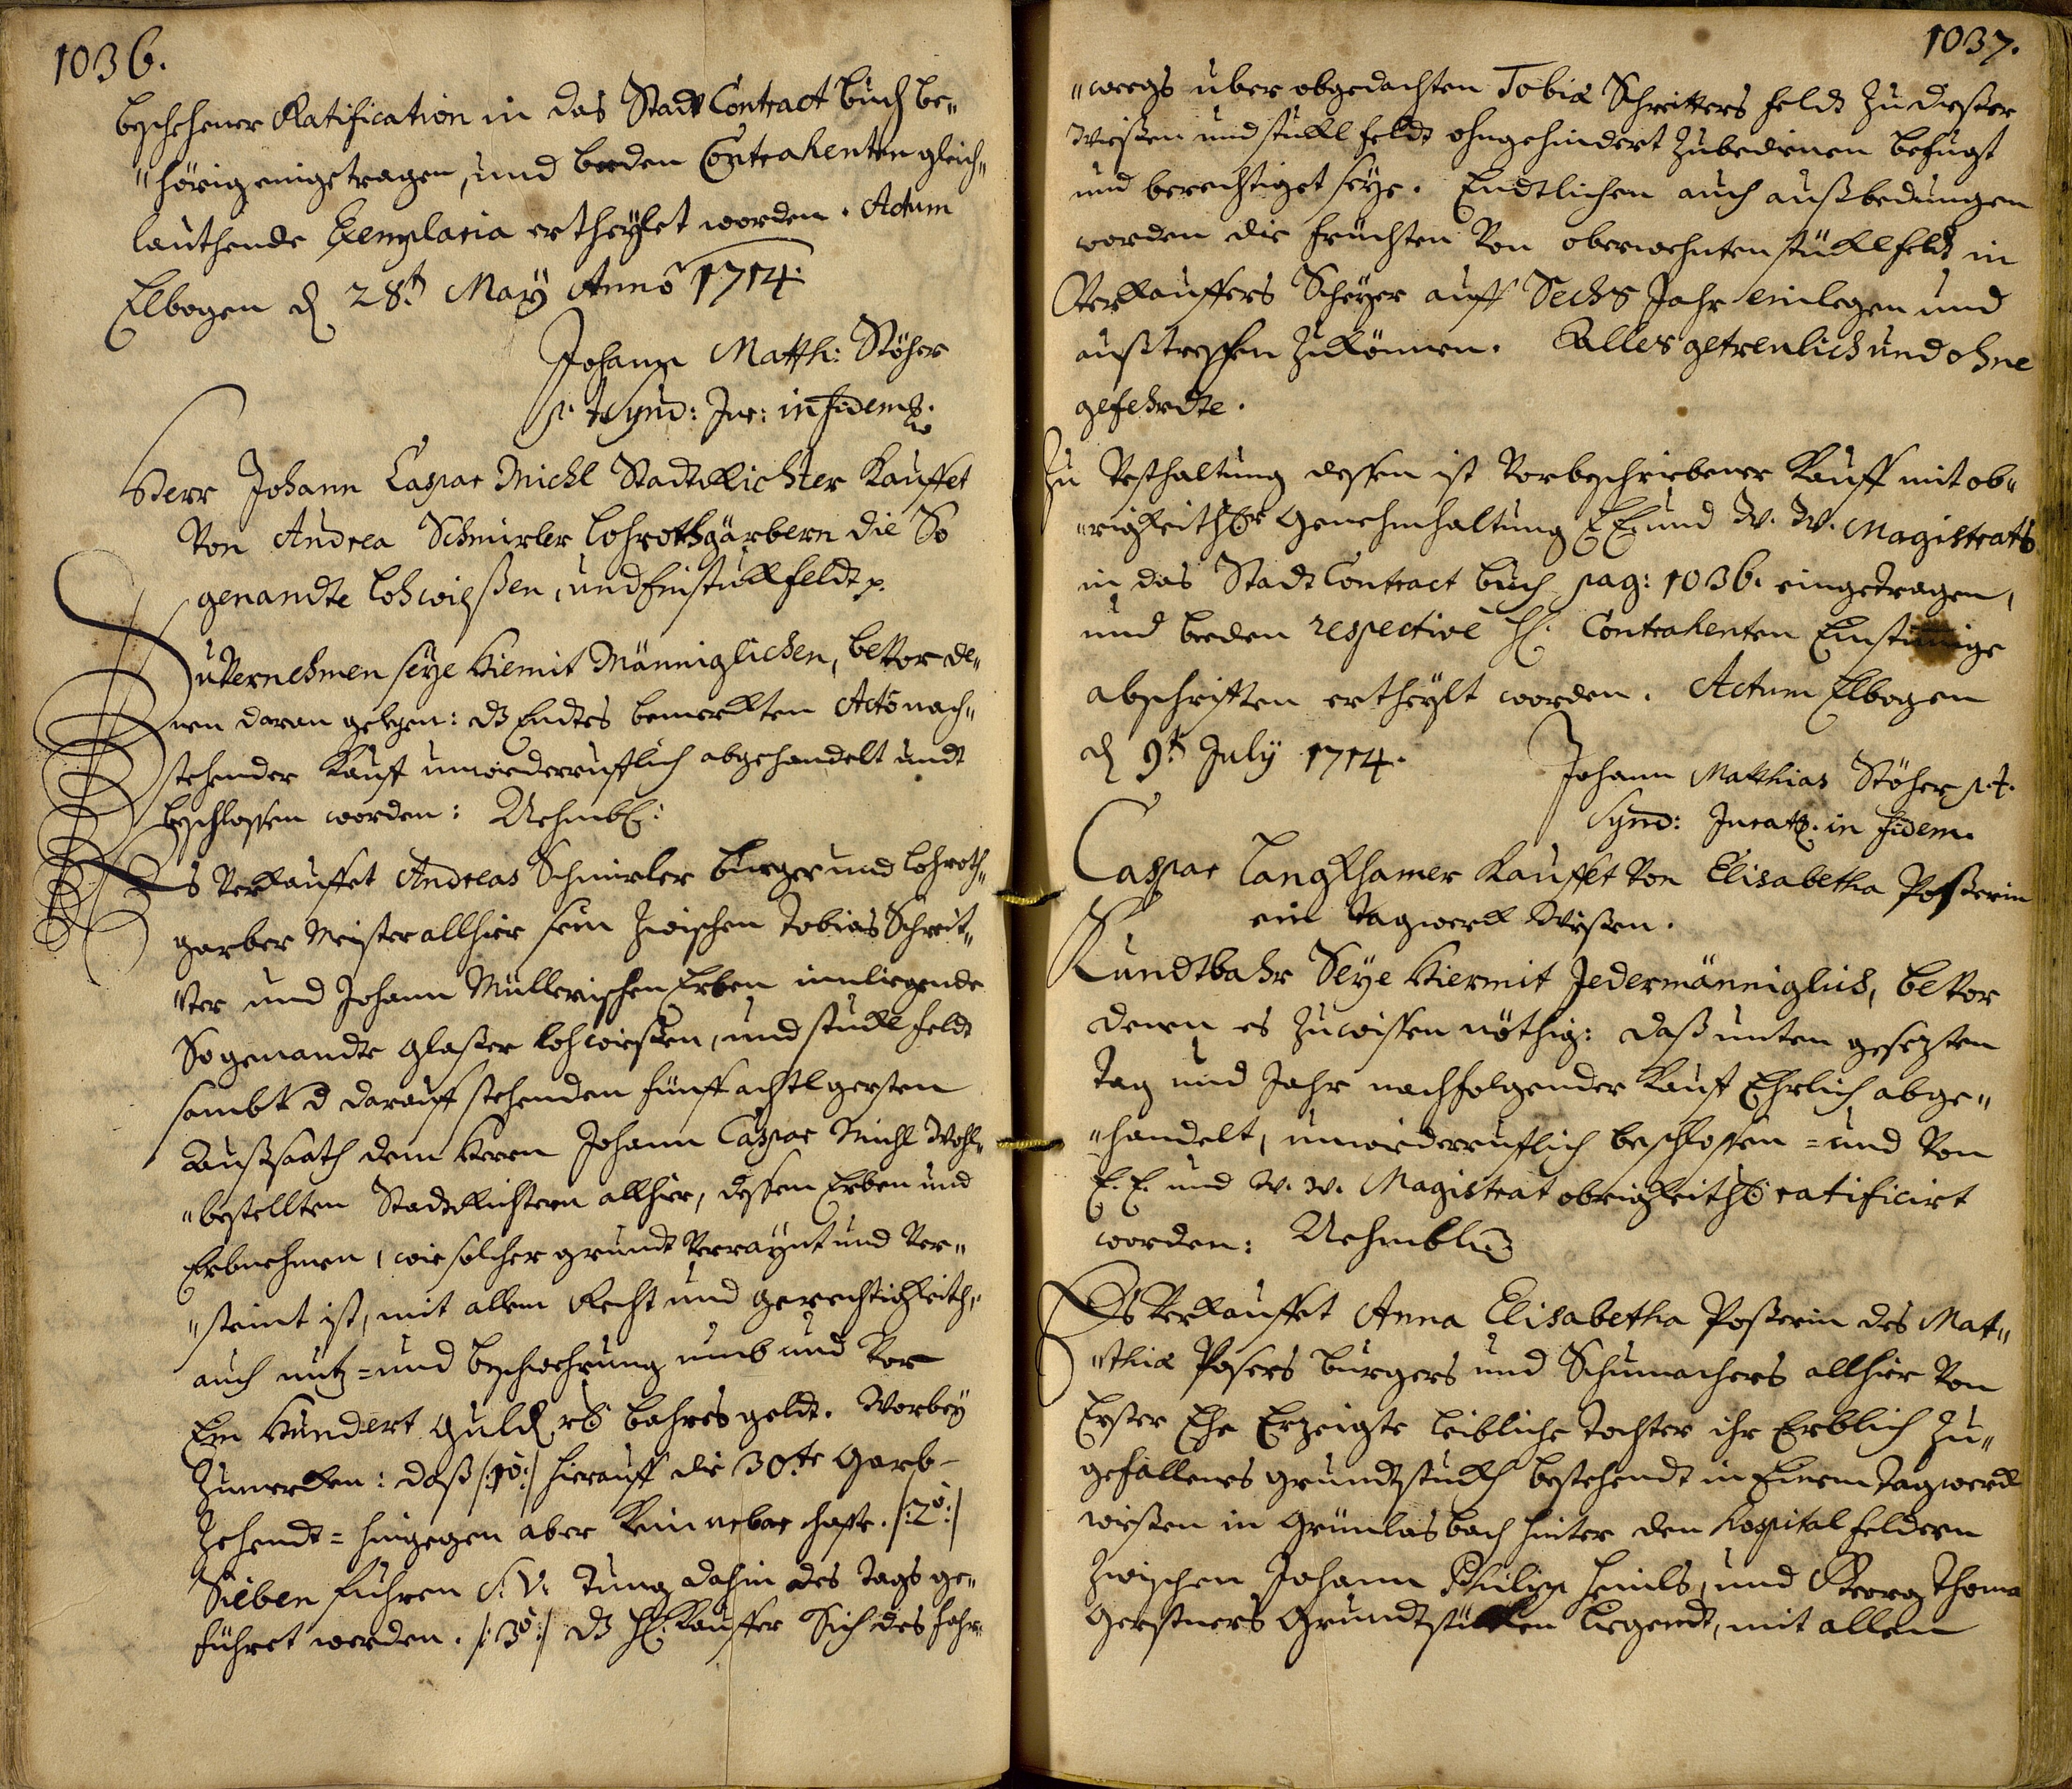 1036.
beschehener Ratification in das Stadt Contract Buch be„
„hörig eingetragen, und beeden Contrahenten gleich„
lauthende Exemplaria ertheylet worden. Actum
Elbogen d 28.t May Anno 1714.
Johann Matth: Stöher
p. t. Synd: Jur: in fidem
Herr Johann Caspar Michl Stadt Richter Kauffet
Von Andrea Schmirler Lohrothgärbern die So
genandte Lohwißen, und ein stuckh feldt p.
Zu Vernehmen seye hiemit Männiglichen, bevor de„
nen daran gelegen: dz Endtes bemerckten Acto nach„
stehender Kauff unwiederrufflich abgehandelt undt
beschlossen worden: Nehmbl:
Es Verkauffet Andreas Schmirler burger und Lohroth„
garber Meister allhier sein zwischen Tobias Schrit„
„ter und Johann Müllerischen Erben innliegende
So genandte Glaßer Lohwießen, und stuckl feldt
sambt d darauff stehenden fünff achtl gersten
Außsaath dem Herrn Johann Caspar Michl Wohl„
„bestellten Stadtrichtern allhier, dessen Erben und
Erbnehmen, wie solcher grundt Verraynt und Ver„
„steint ist, mit allem Recht und gerechtigkeith,
auch nutz= und beschwehrung umb und Vor
Ein Hundert Guld. rh bahres geldt. Worbey
Zumercken: daß /:1o:/ hierauff die 30.te Garb-
Zehendt= hingegen aber kein /:2o:/
Sieben fuhren S: V: Tung dahin des tags ge„
führet werden. /:3o:/ dz H: Kauffer Sich des fahr„
1037.
„weegs über obgedachten Tobiæ Schritters feldt zu dießer
Wießen und stuckl feldt ohngehindert zubedienen befugt
und berechtiget seye. Endtlichen auch außbedungen
worden die früchten Von oberwehnten stückl feldt in
Verkauffers Scheyer auff Sechs Jahr einlegen und
außtreschen zukönnen. Alles getreulich und ohne
gefehrdte.
Zu Vesthaltung dessen ist Vorbeschriebener Kauff mit ob„
„rigkeithl. genehmhaltung E E und W. W. Magistrats
in das Stadt Contract buch pag: 1036. eingetragen,
und beeden respective H. Contrahenten Einstimige
abschrifften ertheylt worden. Actum Elbogen
d 9.t July 1714.
Johann Matthias Stöher p. t.
Synd: Jurat. in fidem.
Caspar Langkhamer Kauffet Von Elisabetha Poßerin
ein tagwerck Wießen.
Kundtbahr Seye Hiermit Jedermänniglich, bevor
denen es zuwissen nöthig: daß unten gesezten
tag und Jahr nachfolgender Kauff Ehrlich abge„
„handelt, unwiederrufflich beschlossen= und Von
E. E. und W. W. Magistrat obrigkeithl ratificirt
worden: Nehmblich
Es Verkauffet Anna Elisabetha Poßerin des Mat„
„thiæ Posers burgers und Schumachers allhier Von
Erster Ehe Erzeigte leibliche tochter ihr Erblich zu„
gefallenes grundtstuckh bestehendt in Einem tagwerck
wießen in Grünlasbach hinter den Hospital feldern
zwischen Johann Philipp Heinls, und Georg Thoma
Gerstners Grundtstücken liegendt, mit allem